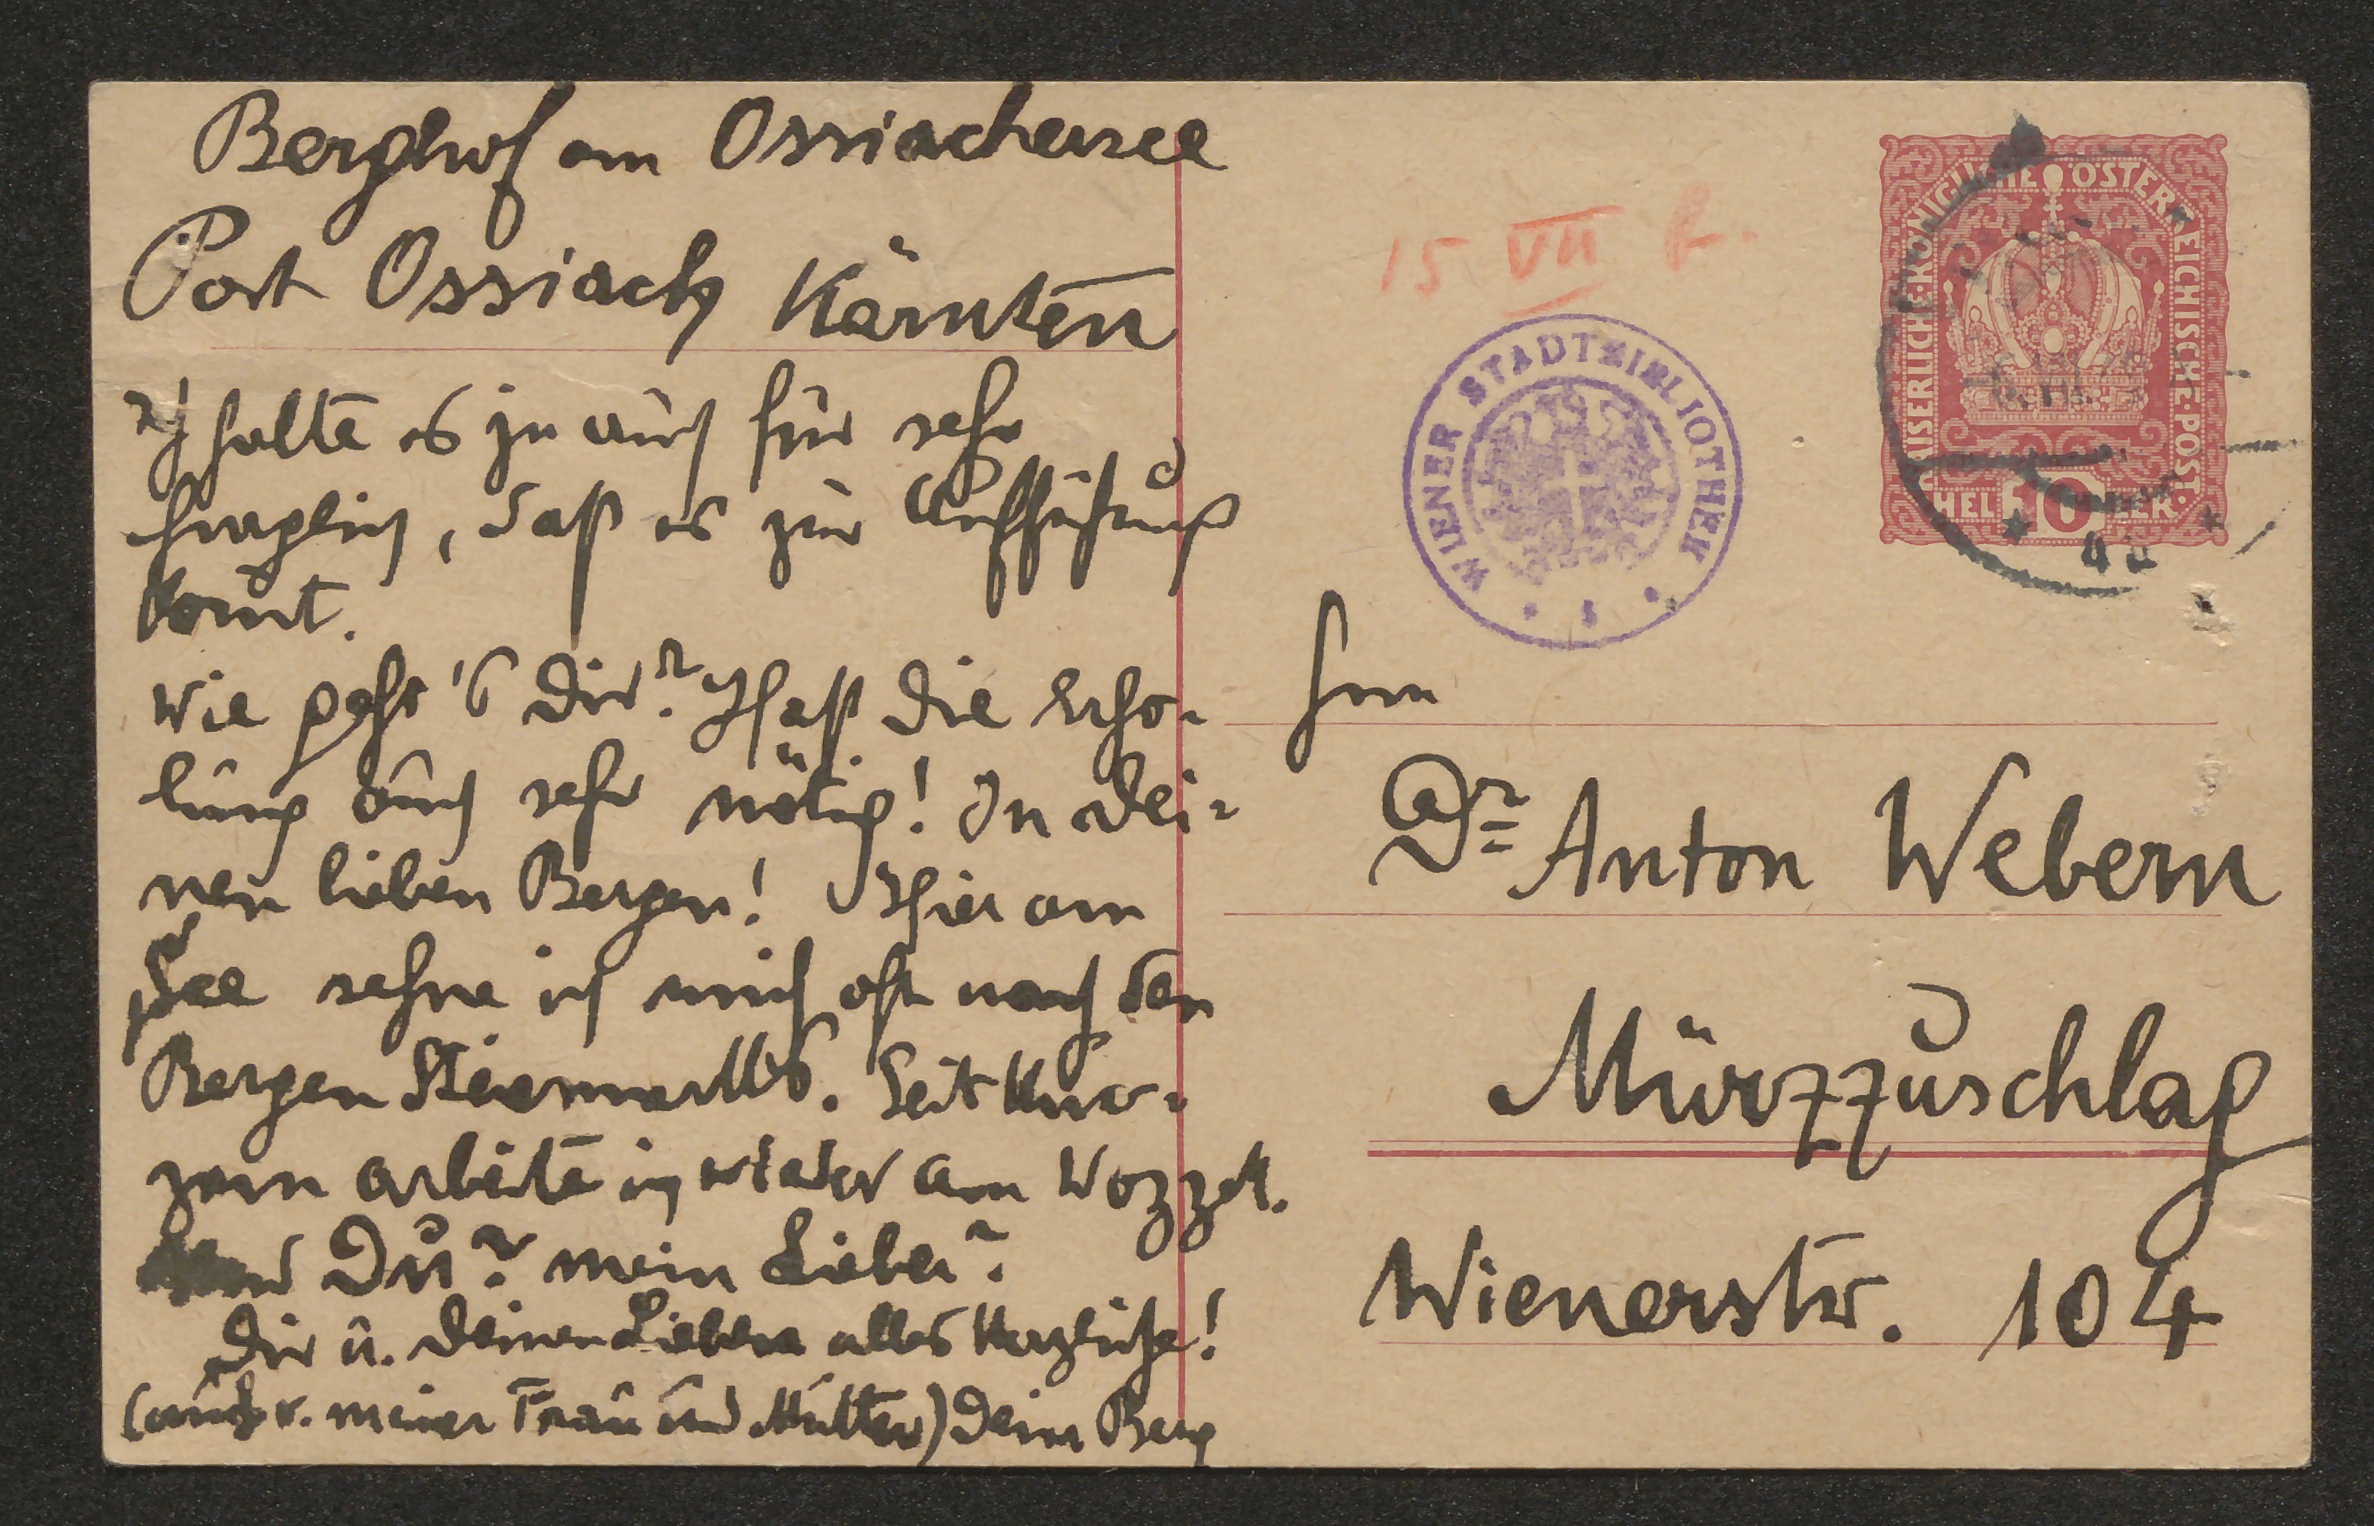 Berghof am Ossiachersee
Post Ossiach Kärnten
Ich halte es ja auch für sehr
fraglich, daß es zur Aufführung
kom̅t.
Wie geht's Dir? Hast die Erho-
lung auch sehr nötig! In Dei-
nen lieben Bergen! Hier am
See sehne ich mich oft nach den
Bergen Steiermarks. Seit Kur-
zem arbeite ich wieder am Wozzek.
Und Du? mein Lieber?
Dir u. Deinen Lieben alles Herzliche!
(auch v. meiner Frau und Mutter) Dein Berg
15 VII
KAISERLICHE·KÖNIGLICHE ÖSTERREICHISCHE·POST·
HEL 10 LER
WIENER STADTBIBLIOTHEK
Herrn
Dr Anton Webern
Mürzzuschlag
Wienerstr. 104